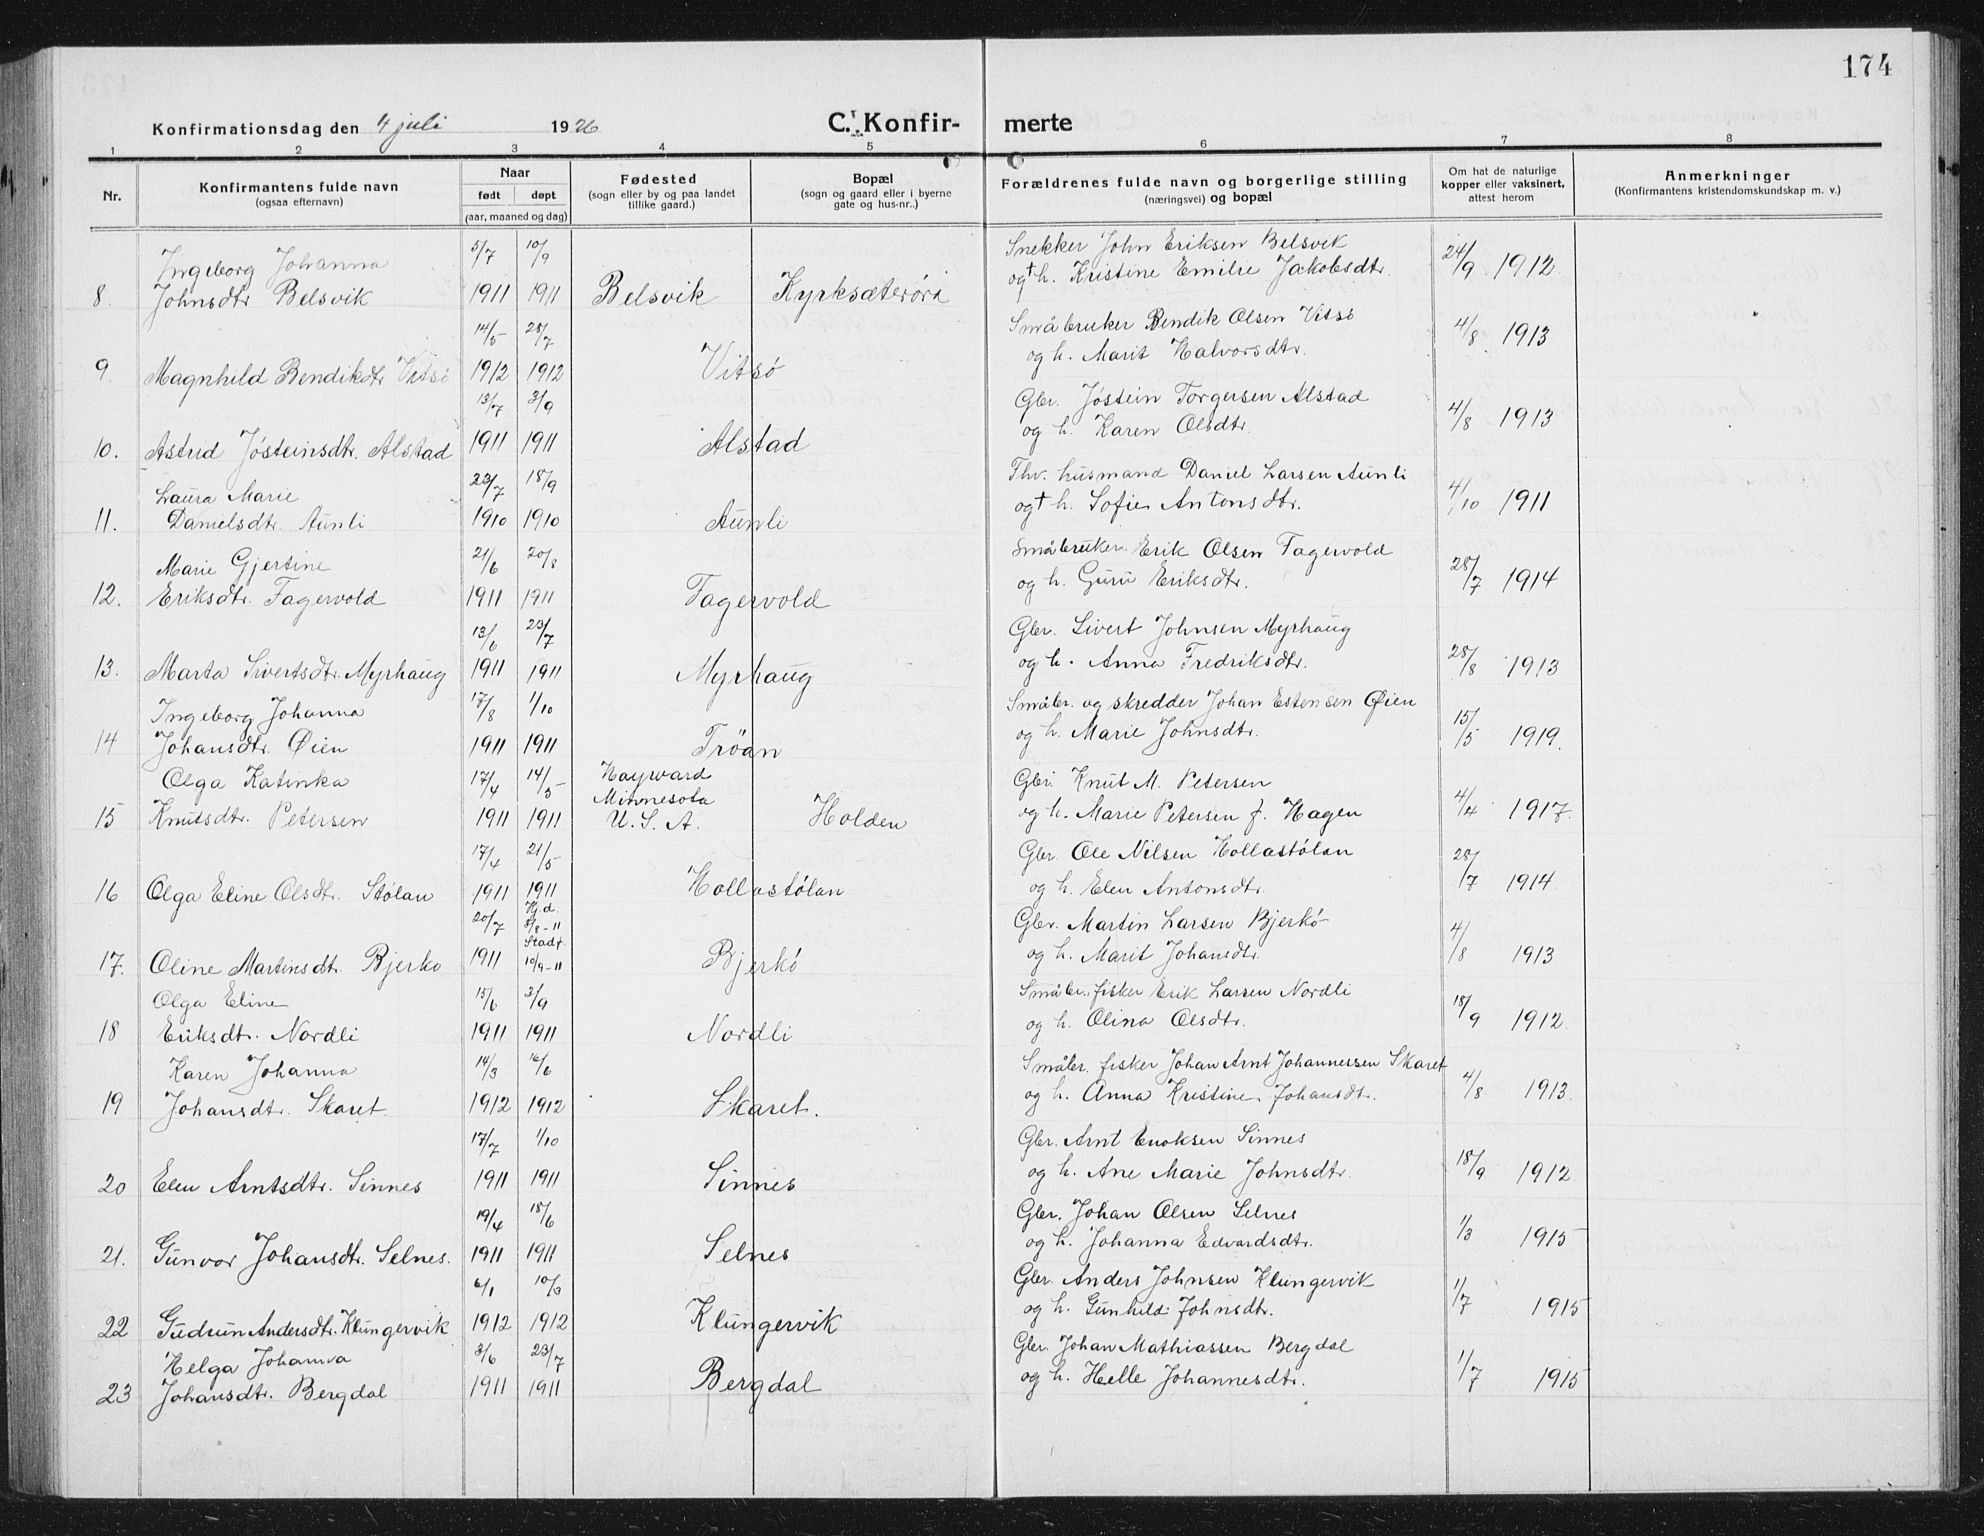 174
Konfirmationsdag den 4 juli 1926 C. Konfir- merte
1 2 3 4 5 6 7 8
Nr.
Konfirmantens fulde navn
(ogsaa efternavn)
Naar
født døpt
(aar, maaned og dag)
Fødested
(sogn eller by og paa landet
tillike gaard.)
Bopæl
(sogn og gaard eller i byerne
gate og hus-nr..)
Forældrenes fulde navn og borgerlige stilling
(næringsvei) og bopæl
Om hat de naturlige
kopper eller vaksinert,
attest herom
Anmerkninger
(Konfirmantens kristendomskundskap m. v.)
Ingeborg Johanna 5/7 10/9 Snekker John Eriksen Belsvik
8. Johnsdtr Belsvik 1911 1911 Belsvik Kyrksæterøra og † h. Kristine Emilie Jakobsdtr. 24/9 1912
14/5 28/7 Småbruker Bendik Olsen Vitsø
9. Magnhild Bendikdtr Vitsø 1912 1912 Vitsø og h. Marit Halvorsdtr. 4/8 1913
13/7 3/9 Gbr. Jøstein Torgersen Alstad
10. Astrid Jøsteinsdtr. Alstad 1911 1911 Alstad og h. Karen Olsdtr. 4/8 1913
Laura Marie 23/7 18/9 Fhv. husmand Daniel Larsen Aunli
11. Danielsdtr. Aunli 1910 1910 Aunli og † h. Sofie Antonsdtr. 4/10 1911
Marie Gjertine 21/6 20/8 Småbruker Erik Olsen Fagervold
12. Eriksdtr. Fagervold 1911 1911 Fagervold og h. Guru Eriksdtr. 28/7 1914
13/6 23/7 Gbr. Sivert Johnsen Myrhaug
13. Marta Sivertsdtr. Myrhaug 1911 1911 Myrhaug og h. Anna Fredriksdtr. 28/8 1913
Ingeborg Johanna 17/8 1/10 Småbr. og skredder Johan Estensen Øien
14 Johansdtr. Øien 1911 1911 Trøan og h. Marie Johnsdtr. 15/5 1919.
Olga Katinka 17/4 14/5 Hayward Gbr. Knut M. Petersen
Minnesota
15 Knutsdtr. Petersen 1911 1911 U. S. A. Holden og h. Marie Petersen f. Hagen 4/4 1917.
17/4 21/5 Gbr. Ole Nilsen Hollastølan
16 Olga Eline Olsdtr. Stølan 1911 1911 Hollastølan og h. Elen Antonsdtr. 28/7 1914
20/7 Hjd. Gbr. Martin Larsen Bjerkø
/8-11
Stadf.
17. Oline Martinsdtr. Bjerkø 1911 10/9-11 Bjerkø og h. Marit Johansdtr. 4/8 1913
Olga Eline 15/6 3/9 Småbr., fisker Erik Larsen Nordli
18 Eriksdtr. Nordli 1911 1911 Nordli og h. Olina Olsdtr. 18/9 1912.
Karen Johanna 14/3 16/6 Småbr. fisker Johan Arnt Johannessen Skaret
19 Johansdtr. Skaret. 1912 1912 Skaret. og h. Anna Kristine Johansdt. 4/8 1913.
17/7 1/10 Gbr. Arnt Enoksen Sinnes
20 Elen Arntsdtr. Sinnes 1911 1911 Sinnes og h. Ane Marie Johnsdtr. 18/9 1912
19/4 18/6 Gbr. Johan Olsen Selnes
21. Gunvor Johansdtr. Selnes. 1911 1911 Selnes og h. Johanna Edvardsdtr. 1/3 1915
6/1 10/3 Gbr. Anders Johnsen Klungervik
22 Gudrun Andersdtr. Klungervik 1912 1912 Klungervik og h. Gunhild Johnsdtr. 1/7 1915
Helga Johanna 3/6 23/7 Gbr. Johan Mathiassen Bergdal
23 Johansdtr. Bergdal 1911 1911 Bergdal og h. Helle Johannesdtr. 1/7 1915